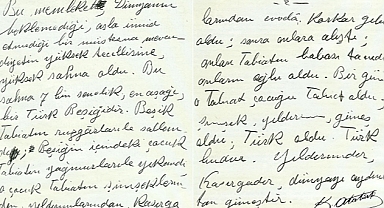 Bu memleket, Dünyanın
beklemediği, asla ümid
etmediği bir müstesna mevcu-
diyetin yüksek tecellisine,
yüksek sahne oldu. Bu
sahne 7 bin senelik, en aşağı,
bir Türk Beşiğidir. Beşik
Tabiatın rüzgârlarile sallan
dı; Beşiğin içindeki çocuk
Tabiatın yağmurlarile yıkandı
o çocuk Tabiatın şimşeklerin
den, yıldırımlarından Kasırga
larından evvelâ, Korkar gibi
oldu; sonra onlara alıştı;
onları Tabiatın babası tanıdı
onların oğlu oldu. Bir gün
o Tabiat çocuğu Tabiat oldu;
şimşek, yıldırım, güneş
oldu; Türk oldu. Türk
budur. Yıldırımdır,
Kasırgadır, dünyayı aydın
tan güneştir.
K. Atatürk